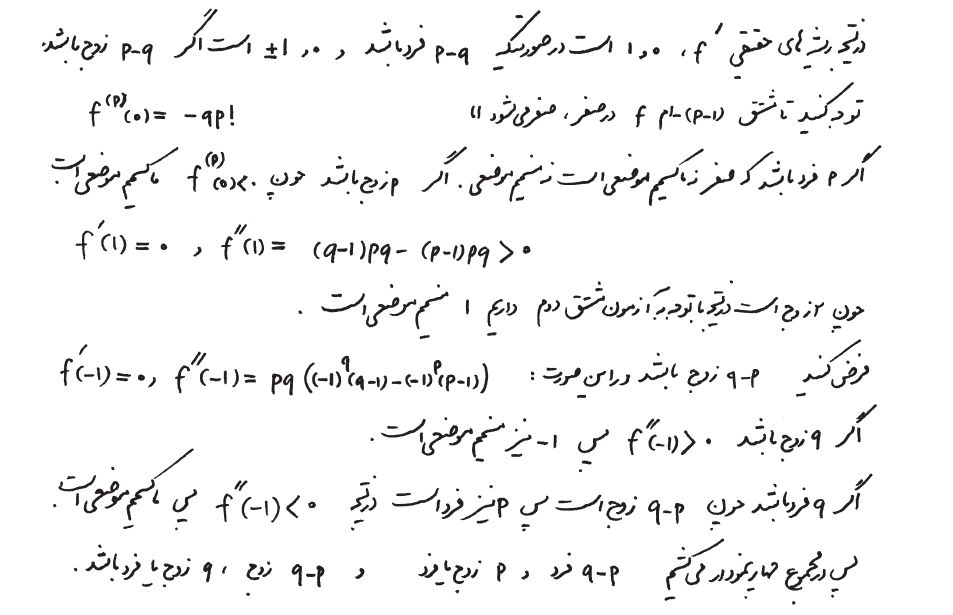 درنتیجه ریشه‌های حقیقی f′ ، 0 و 1 است در صورتیکه p-q فرد باشد و 0 , ±1 است اگر p-q زوج باشد.
توجه کنید تا مشتق (p-1)-ام f در صفر ، صفر می‌شود !! f^(p)(0) = -qp!
اگر p فرد باشد که صفر نه ماکسیمم موضعی است نه منیمم موضعی . اگر p زوج باشد چون f^(p)(0)<0 ماکسیمم موضعی است
f′(1) = 0 , f″(1) = (q-1)pq - (p-1)pq > 0
چون 2 زوج است درنتیجه با توجه به آزمون مشتق دوم داریم 1 منیمم موضعی است .
فرض کنید q-p زوج باشد در این صورت : f′(-1) = 0, f″(-1) = pq((-1)^q(q-1)-(-1)^p(p-1))
اگر q زوج باشد f″(-1) > 0 پس -1 نیز منیمم موضعی است .
اگر q فرد باشد چون q-p زوج است پس p نیز فرد است درنتیجه f″(-1) < 0 پس ماکسیمم موضعی است .
پس در مجموع چهار نمودار می‌کشیم q-p فرد و p زوج یا فرد و q-p زوج ، q زوج یا فرد باشد .